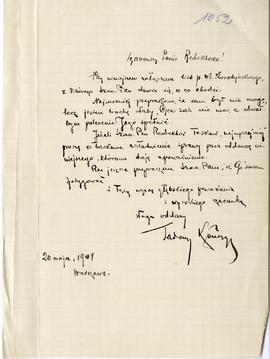 1052
Szanowny Panie Redaktorze!
Przy niniejszem załączam list p. Wł.
z którego Szan. Pan dowie się, o co chodzi.
Najmocniej przepraszam, że sam być nie mogę,
lecz jestem trochę słaby
tym polecenie Jego spełnić.
Jeżeli Szan. Pan Redaktor łaskaw, najuprzejmiej
proszę o łaskawe załatwienie sprawy przez oddawcę ni-
niejszego, któremu daję upoważnienie.
Raz jeszcze przepraszam Szan. Pana, że Go
fatygować
i Tegoż wyrazy głębokiego poważania
i wysokiego szacunku
sługa oddany
Tadeusz
20 maja, 1901
Warszawa.